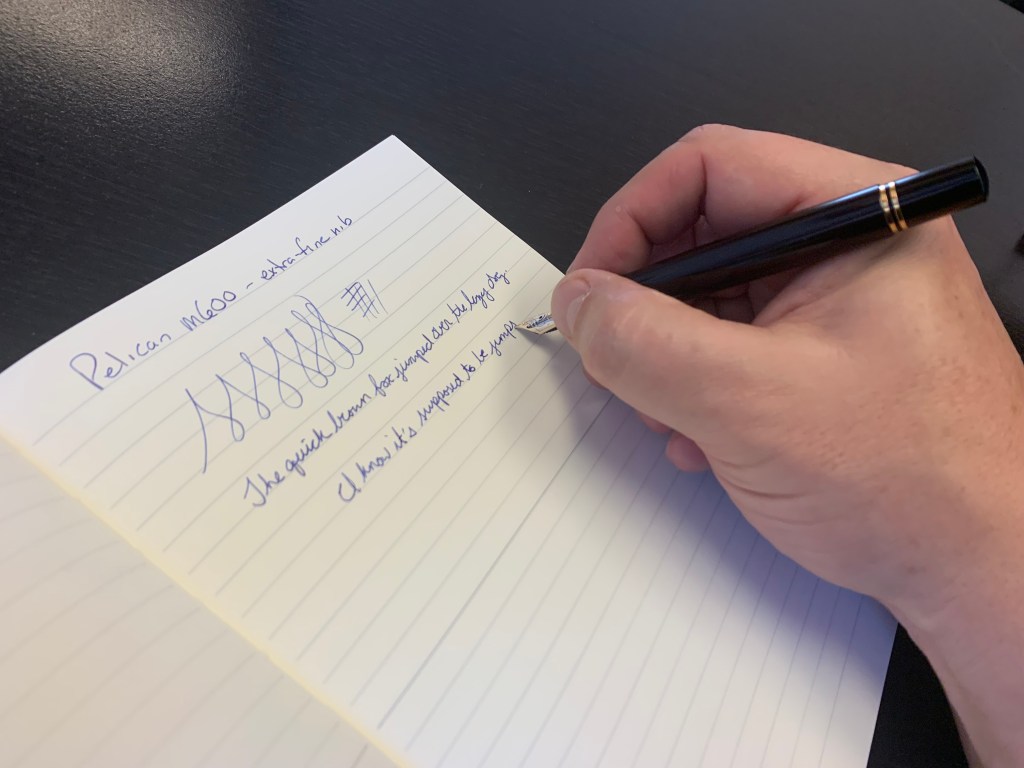 Pelican m600 - extra-fine nib
The quick brown fox jumped over the lazy dog.
I know it's supposed to be jumps